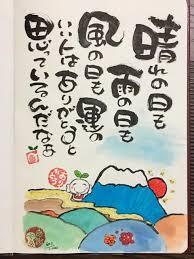 晴れの日も
雨の日も
風の日も運の
いい人はありがとうと
思っているんだなぁ